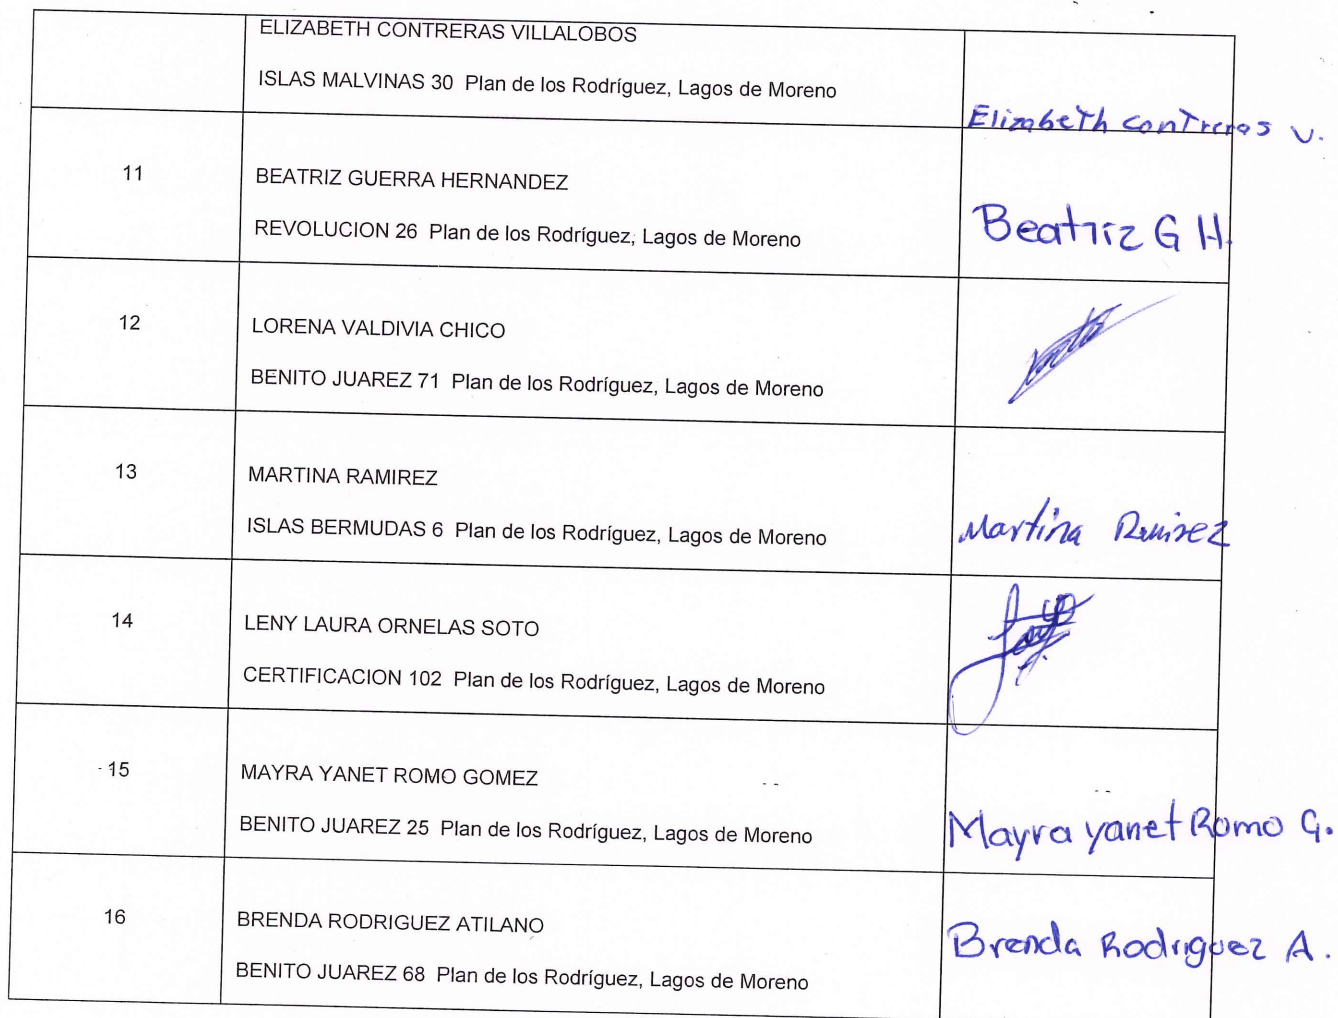 ELIZABETH CONTRERAS VILLALOBOS
ISLAS MALVINAS 30 Plan de los Rodríguez, Lagos de Moreno
Elizabeth Contreras V.
11
BEATRIZ GUERRA HERNANDEZ
REVOLUCION 26 Plan de los Rodríguez, Lagos de Moreno
Beatriz G H.
12
LORENA VALDIVIA CHICO
BENITO JUAREZ 71 Plan de los Rodríguez, Lagos de Moreno
13
MARTINA RAMIREZ
ISLAS BERMUDAS 6 Plan de los Rodríguez, Lagos de Moreno
Martina
14
LENY LAURA ORNELAS SOTO
CERTIFICACION 102 Plan de los Rodríguez, Lagos de Moreno
15
MAYRA YANET ROMO GOMEZ
BENITO JUAREZ 25 Plan de los Rodríguez, Lagos de Moreno
Mayra yanet Romo G.
16
BRENDA RODRIGUEZ ATILANO
BENITO JUAREZ 68 Plan de los Rodríguez, Lagos de Moreno
Brenda Rodriguez A.